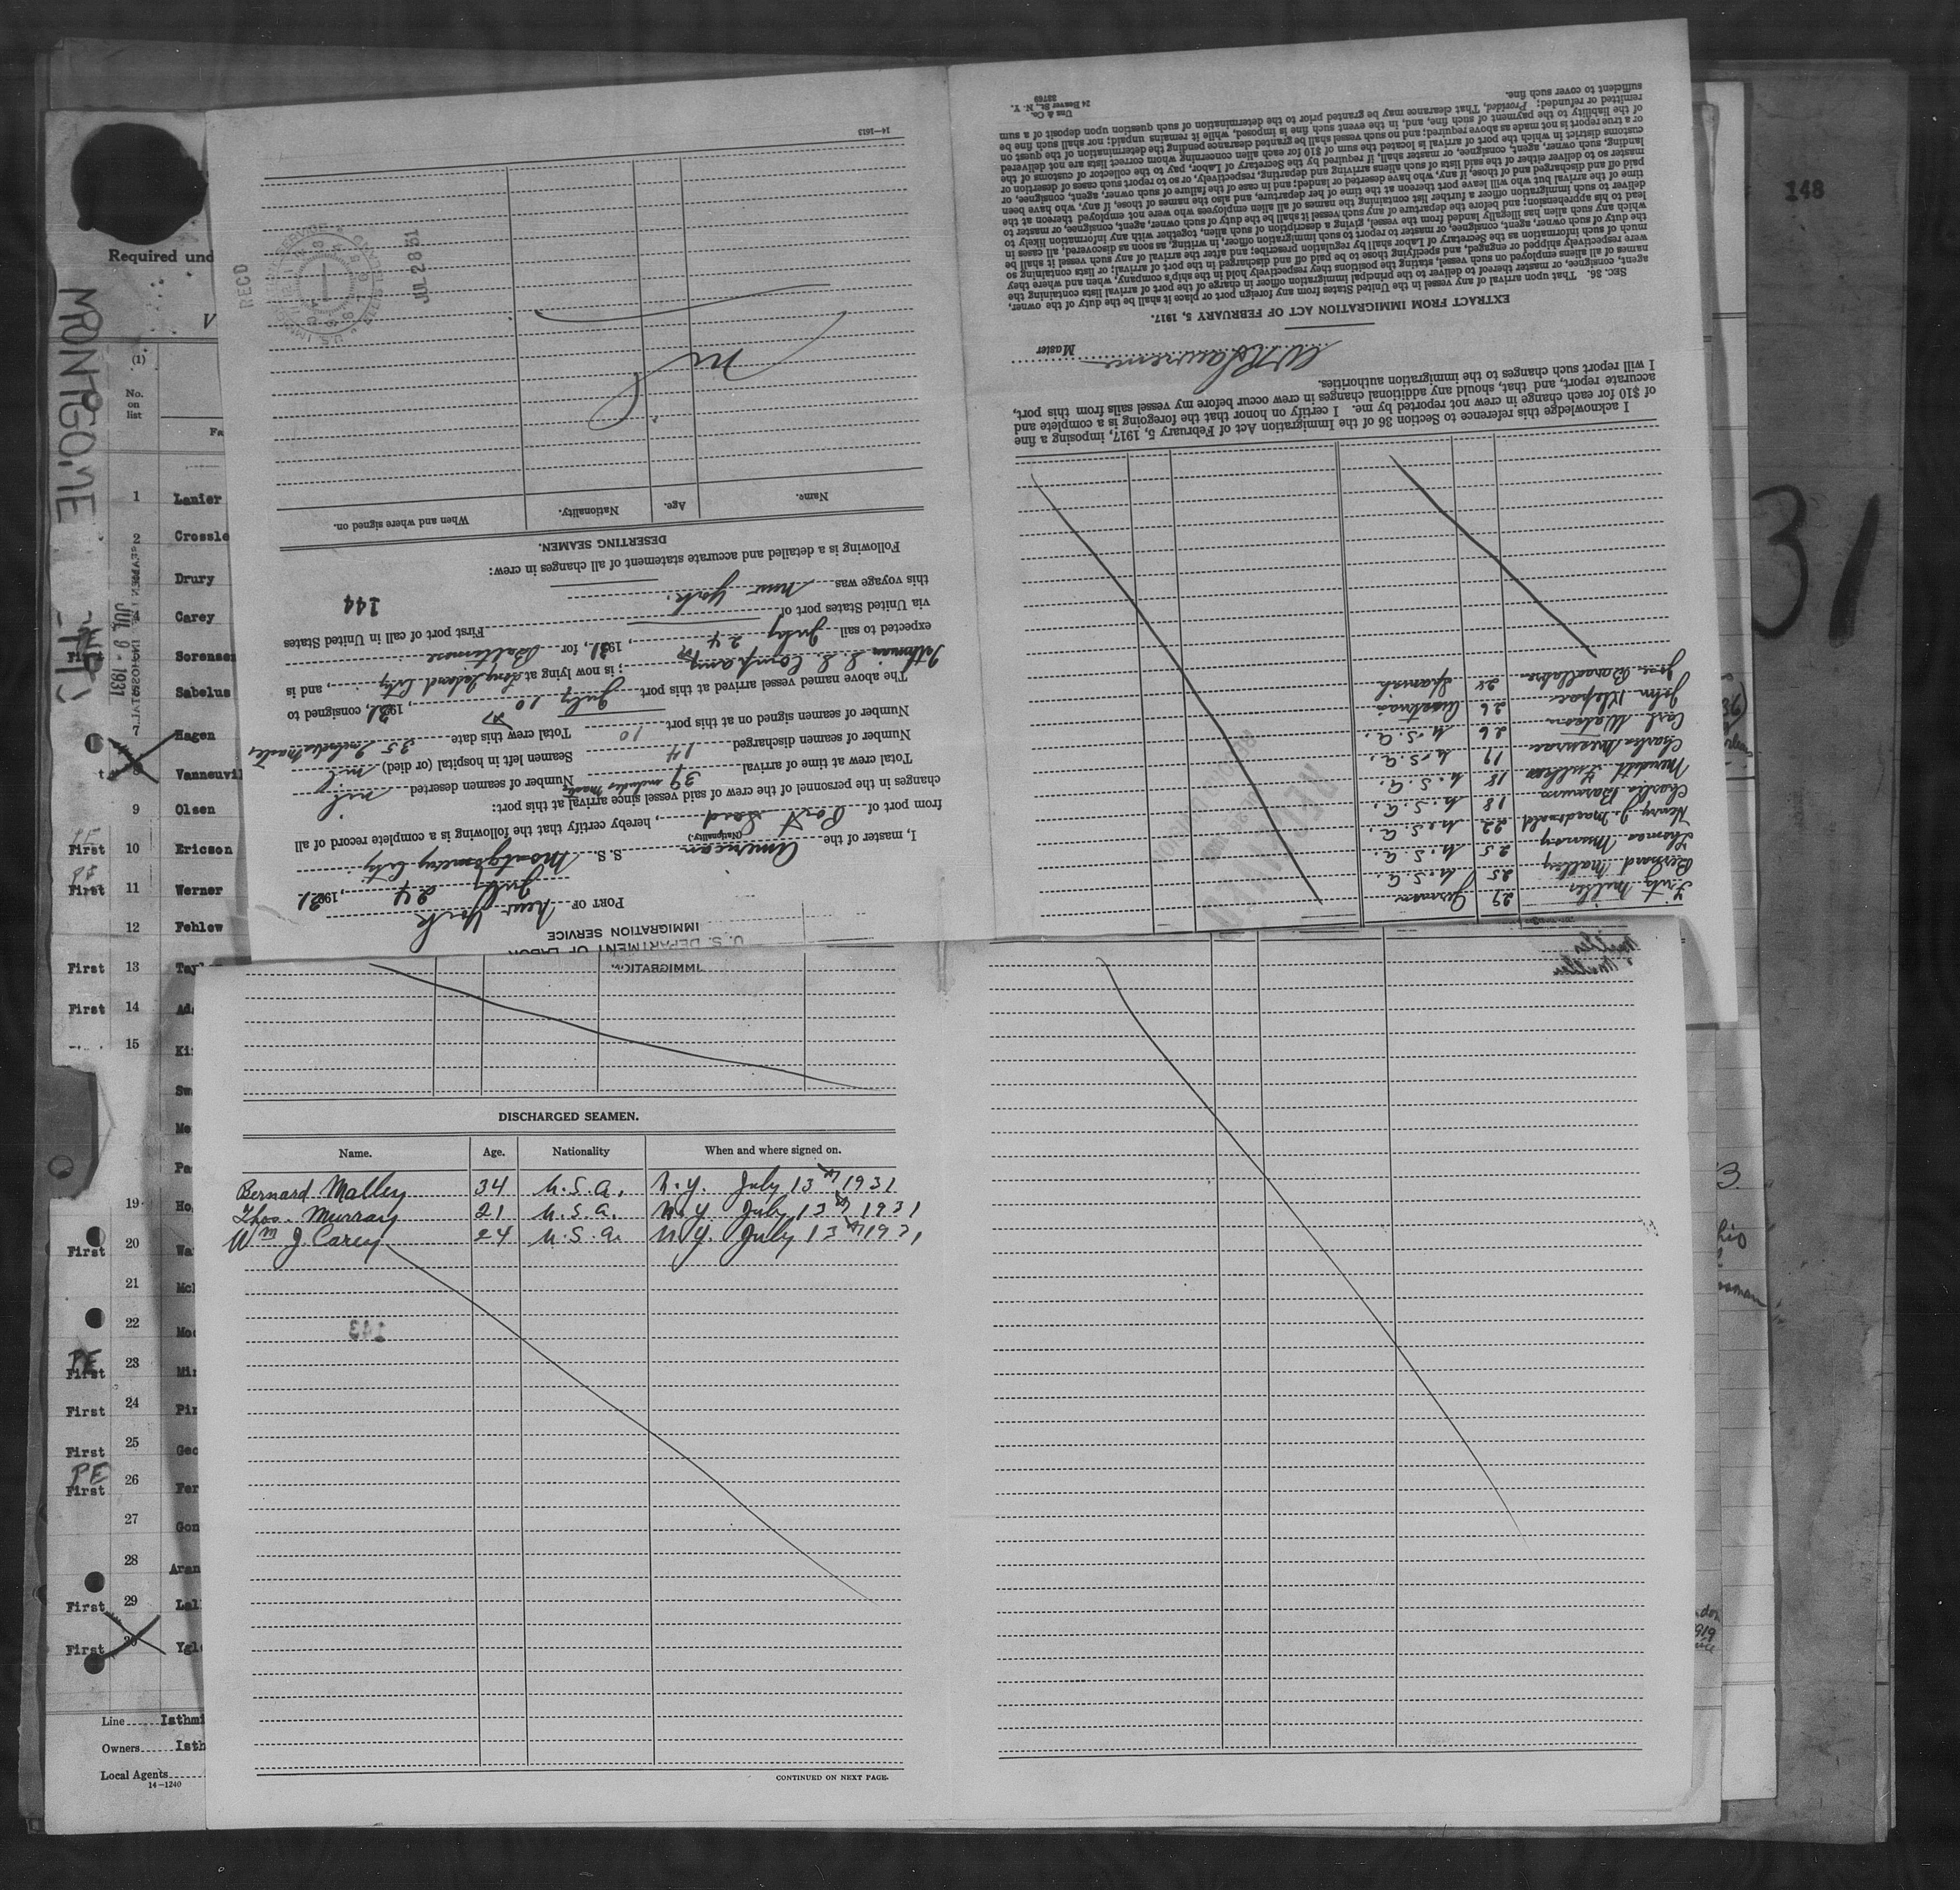 148
31
Required und
MONTGOME
(1)
No.
on
list
Fa
1 Lanier
2 Crossle
Drury
Carey
Sorensen
Sabelus
7 Hagen
Vanneuvil
9 Olsen
First 10 Ericson
First 11 Werner
12 Fehlow
First 13
First 14
15
19
First 20
21
22
PE
First 23
First 24
First 25
PE
First 26
27
28 Aran
First 29
First Ygl
JUL 9 - 1931
Line Isthmi
Owners Isth
Local Agents
14-1240
U. S. DEPARTMENT OF LABOR
IMMIGRATION SERVICE
PORT OF New York
July 24, 1931
I, master of the American S. S. Montgomery City
(Nationality.)
from port of Port Said, hereby certify that the following is a complete record of all
changes in the personnel of the crew of said vessel since arrival at this port:
Total crew at time of arrival 39 includes Master Number of seamen deserted nil
Number of seamen discharged 14 Seamen left in hospital (or died) nil
Number of seamen signed on at this port 10 Total crew this date 35 Includes Master
The above named vessel arrived at this port July 10th, 1931, consigned to
Isthmian S.S. Company; is now lying at Long Island City, and is
expected to sail July 24th, 1931, for Baltimore
via United States port of First port of call in United States
this voyage was New York. 144
Following is a detailed and accurate statement of all changes in crew:
DESERTING SEAMEN.
Name. Age. Nationality. When and where signed on.
REC'D JUL 28 31
14-1613
Fritz Nilsen 29 German
Bernard Malley 25 U.S.A.
Thomas Murray 25 U.S.A.
Henry J. Macdonald 22 U.S.A.
Charles Barnum 18 U.S.A.
Meredith Fulkes 18 U.S.A.
Charles 19 U.S.A.
Carl Watson 26 U.S.A.
John Klepac 26 Austrian
Jose 24 Spanish
I acknowledge this reference to Section 36 of the Immigration Act of February 5, 1917, imposing a fine
of $10 for each change in crew not reported by me. I certify on honor that the foregoing is a complete and
accurate report, and that, should any additional changes in crew occur before my vessel sails from this port,
I will report such changes to the immigration authorities.
W R Lawrence Master
EXTRACT FROM IMMIGRATION ACT OF FEBRUARY 5, 1917.
SEC. 36. That upon arrival of any vessel in the United States from any foreign port or place it shall be the duty of the owner,
agent, consignee, or master thereof to deliver to the principal immigration officer in charge of the port of arrival lists containing the
names of all aliens employed on such vessel, stating the positions they respectively hold in the ship's company, when and where they
were respectively shipped or engaged, and specifying those to be paid off and discharged in the port of arrival; or lists containing so
much of such information as the Secretary of Labor shall by regulation prescribe; and after the arrival of any such vessel it shall be
the duty of such owner, agent, consignee, or master to report to such immigration officer, in writing, as soon as discovered, all cases in
which any such alien has illegally landed from the vessel, giving a description of such alien, together with any information likely to
lead to his apprehension; and before the departure of any such vessel it shall be the duty of such owner, agent, consignee, or master to
deliver to such immigration officer a further list containing the names of all alien employees who were not employed thereon at the
time of the arrival but who will leave port thereon at the time of her departure, and also the names of those, if any, who have been
paid off and discharged and of those, if any, who have deserted or landed; and in case of the failure of such owner, agent, consignee, or
master so to deliver either of the said lists of such aliens arriving and departing, respectively, or so to report such cases of desertion or
landing, such owner, agent, consignee, or master shall, if required by the Secretary of Labor, pay to the collector of customs of the
customs district in which the port of arrival is located the sum of $10 for each alien concerning whom correct lists are not delivered
or a true report is not made as above required; and no such vessel shall be granted clearance pending the determination of the quest on
of the liability to the payment of such fine, and, in the event such fine is imposed, while it remains unpaid; nor shall such fine be
remitted or refunded: Provided, That clearance may be granted prior to the determination of such question upon deposit of a sum
sufficient to cover such fine.
Unz & Co.
24 Beaver St., N. Y.
33769
DISCHARGED SEAMEN.
Name. Age. Nationality When and where signed on.
Bernard Malley 34 U.S.A. N.Y. July 13th 1931
Thos. Murray 21 U.S.A. N.Y July 13th 1931
Wm J. Carey 24 U.S.A. N.Y. July 13th 1931
143
CONTINUED ON NEXT PAGE.